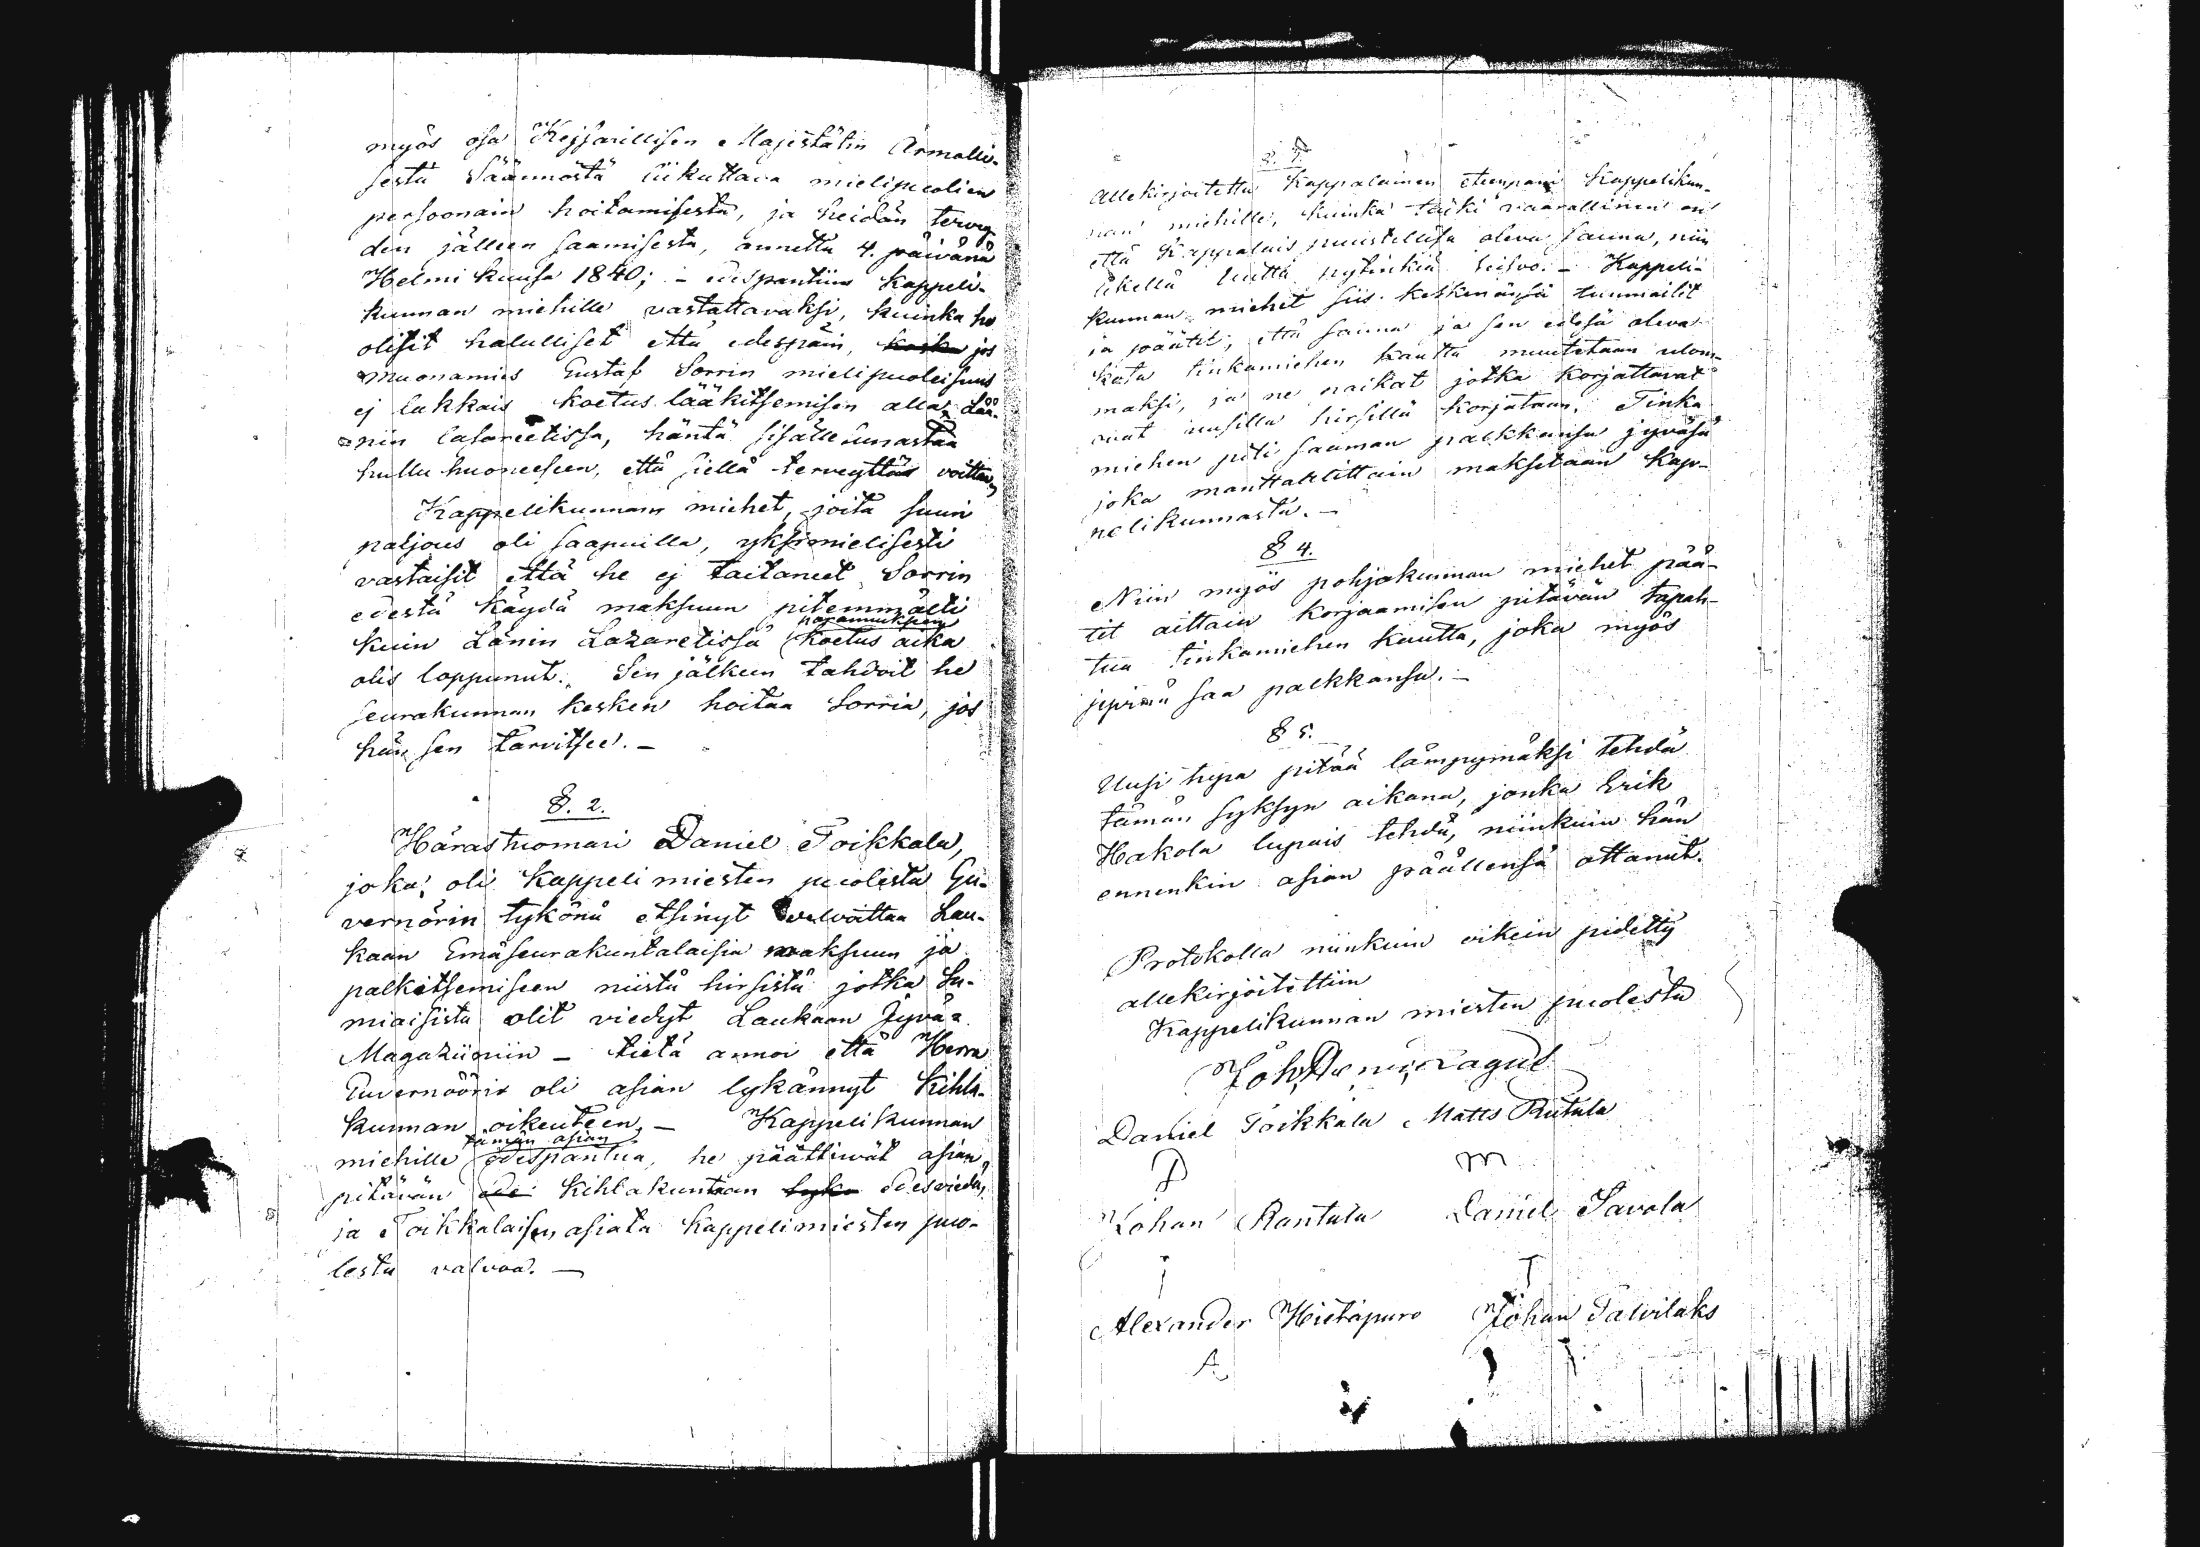 myös osa Kejsarillisen Majestätin Armolli-
sesta Säännöstä liikuttava mielipuolien
persoonain hoitamisesta, ja heidän tervey
den jälleen saamisesta, annettu 4. päivänä
Helmi kuusa 1840; - edespantiin Kappeli-
kunnan miehille vastattavaksi, kuinka he
olisit halulliset että edespäin, koska jos
Muonamies Gustaf Sorrin mielipuolisuus
ej lakkais koetus lääkitsemisen alla Lää-
nin lasareetissa, häntä sisälle
hullu huoneeseen, että siellä terveyttäs voittaa,
Kappelikunnan miehet, joita suuri
paljous oli saapuilla, yksimielisesti
vastaisit että he ej taitaneet Sorrin
edestä käydä maksuun pitemmälti
parannuksen
kuin Länin Lazaretissa koetus aika
olis loppunut. Sen jälkeen tahdoit he
seurakunnan kesken hoitaa Sorria, jos
hän sen tarvitsee. -
§. 2.
Härastuomari Daniel Toikkala,
joka oli Kappeli miesten puolesta Gu-
vernörin tykönä etsinyt velvattaa Lau-
kaan Emäseurakuntalaisia maksuun ja
palkitsemiseen niistä hirsistä jotka Su-
miaisista olit viedyt Laukaan Jyvä-
Magaziiniin - tietä annoi että Herra
Guvernööri oli asian lykännyt Kihla-
kunnan oikeuteen, - Kappelikunnan
tämän asian
miehille edespantua, he päättivät asian
pitävän ede Kihlakuntaan lyke edesvieda,
ja Toikkalaisen asiata Kappelimiesten puo-
lesta valvoa. -
§. 3.
Allekirjoitettu Kappalainen eteenpani Kappelikun-
nan miehille, kuinka vaarallinen on
että Kappalais puustellisa oleva sauna, niin
likellä uutta pytinkiä seisoo. - Kappeli-
kunnan miehet siis keskenänsä tuumailit
ja päätit; että sauna ja sen edesä oleva
kota tinkamiehen kautta muutetaan ulom-
maksi, ja ne paikat jotka korjattavat
ovat uusilla hirsillä korjataan. Tinka
miehen piti saaman palkkansa jyväsä
joka manttalittain maksetaan Kap-
pelikunnasta. -
§ 4.
Niin myös pohjakunnan miehet pää-
tit aittain korjaamisen pitävän tapah-
tua tinkamiehen kautta, joka myös
jyvinä saa palkkansa. -
§ 5.
Uusi pitää lämpymäksi tehdä
tämän syksyn aikana, jonka Erik
Hakola lupais tehdä, niinkuin hän
ennenkin asian päällensä ottanut.
Protokolla niinkuin oikein pidetty
allekirjoitettiin
Kappelikunnan miesten puolesta
Joh. Lagus
Daniel Toikkala Matts Riitula
D m
Johan Rantala Daniel Savola
Alexander Hietapuro Johan Talvilaks
A